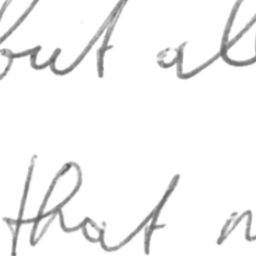 but al
that